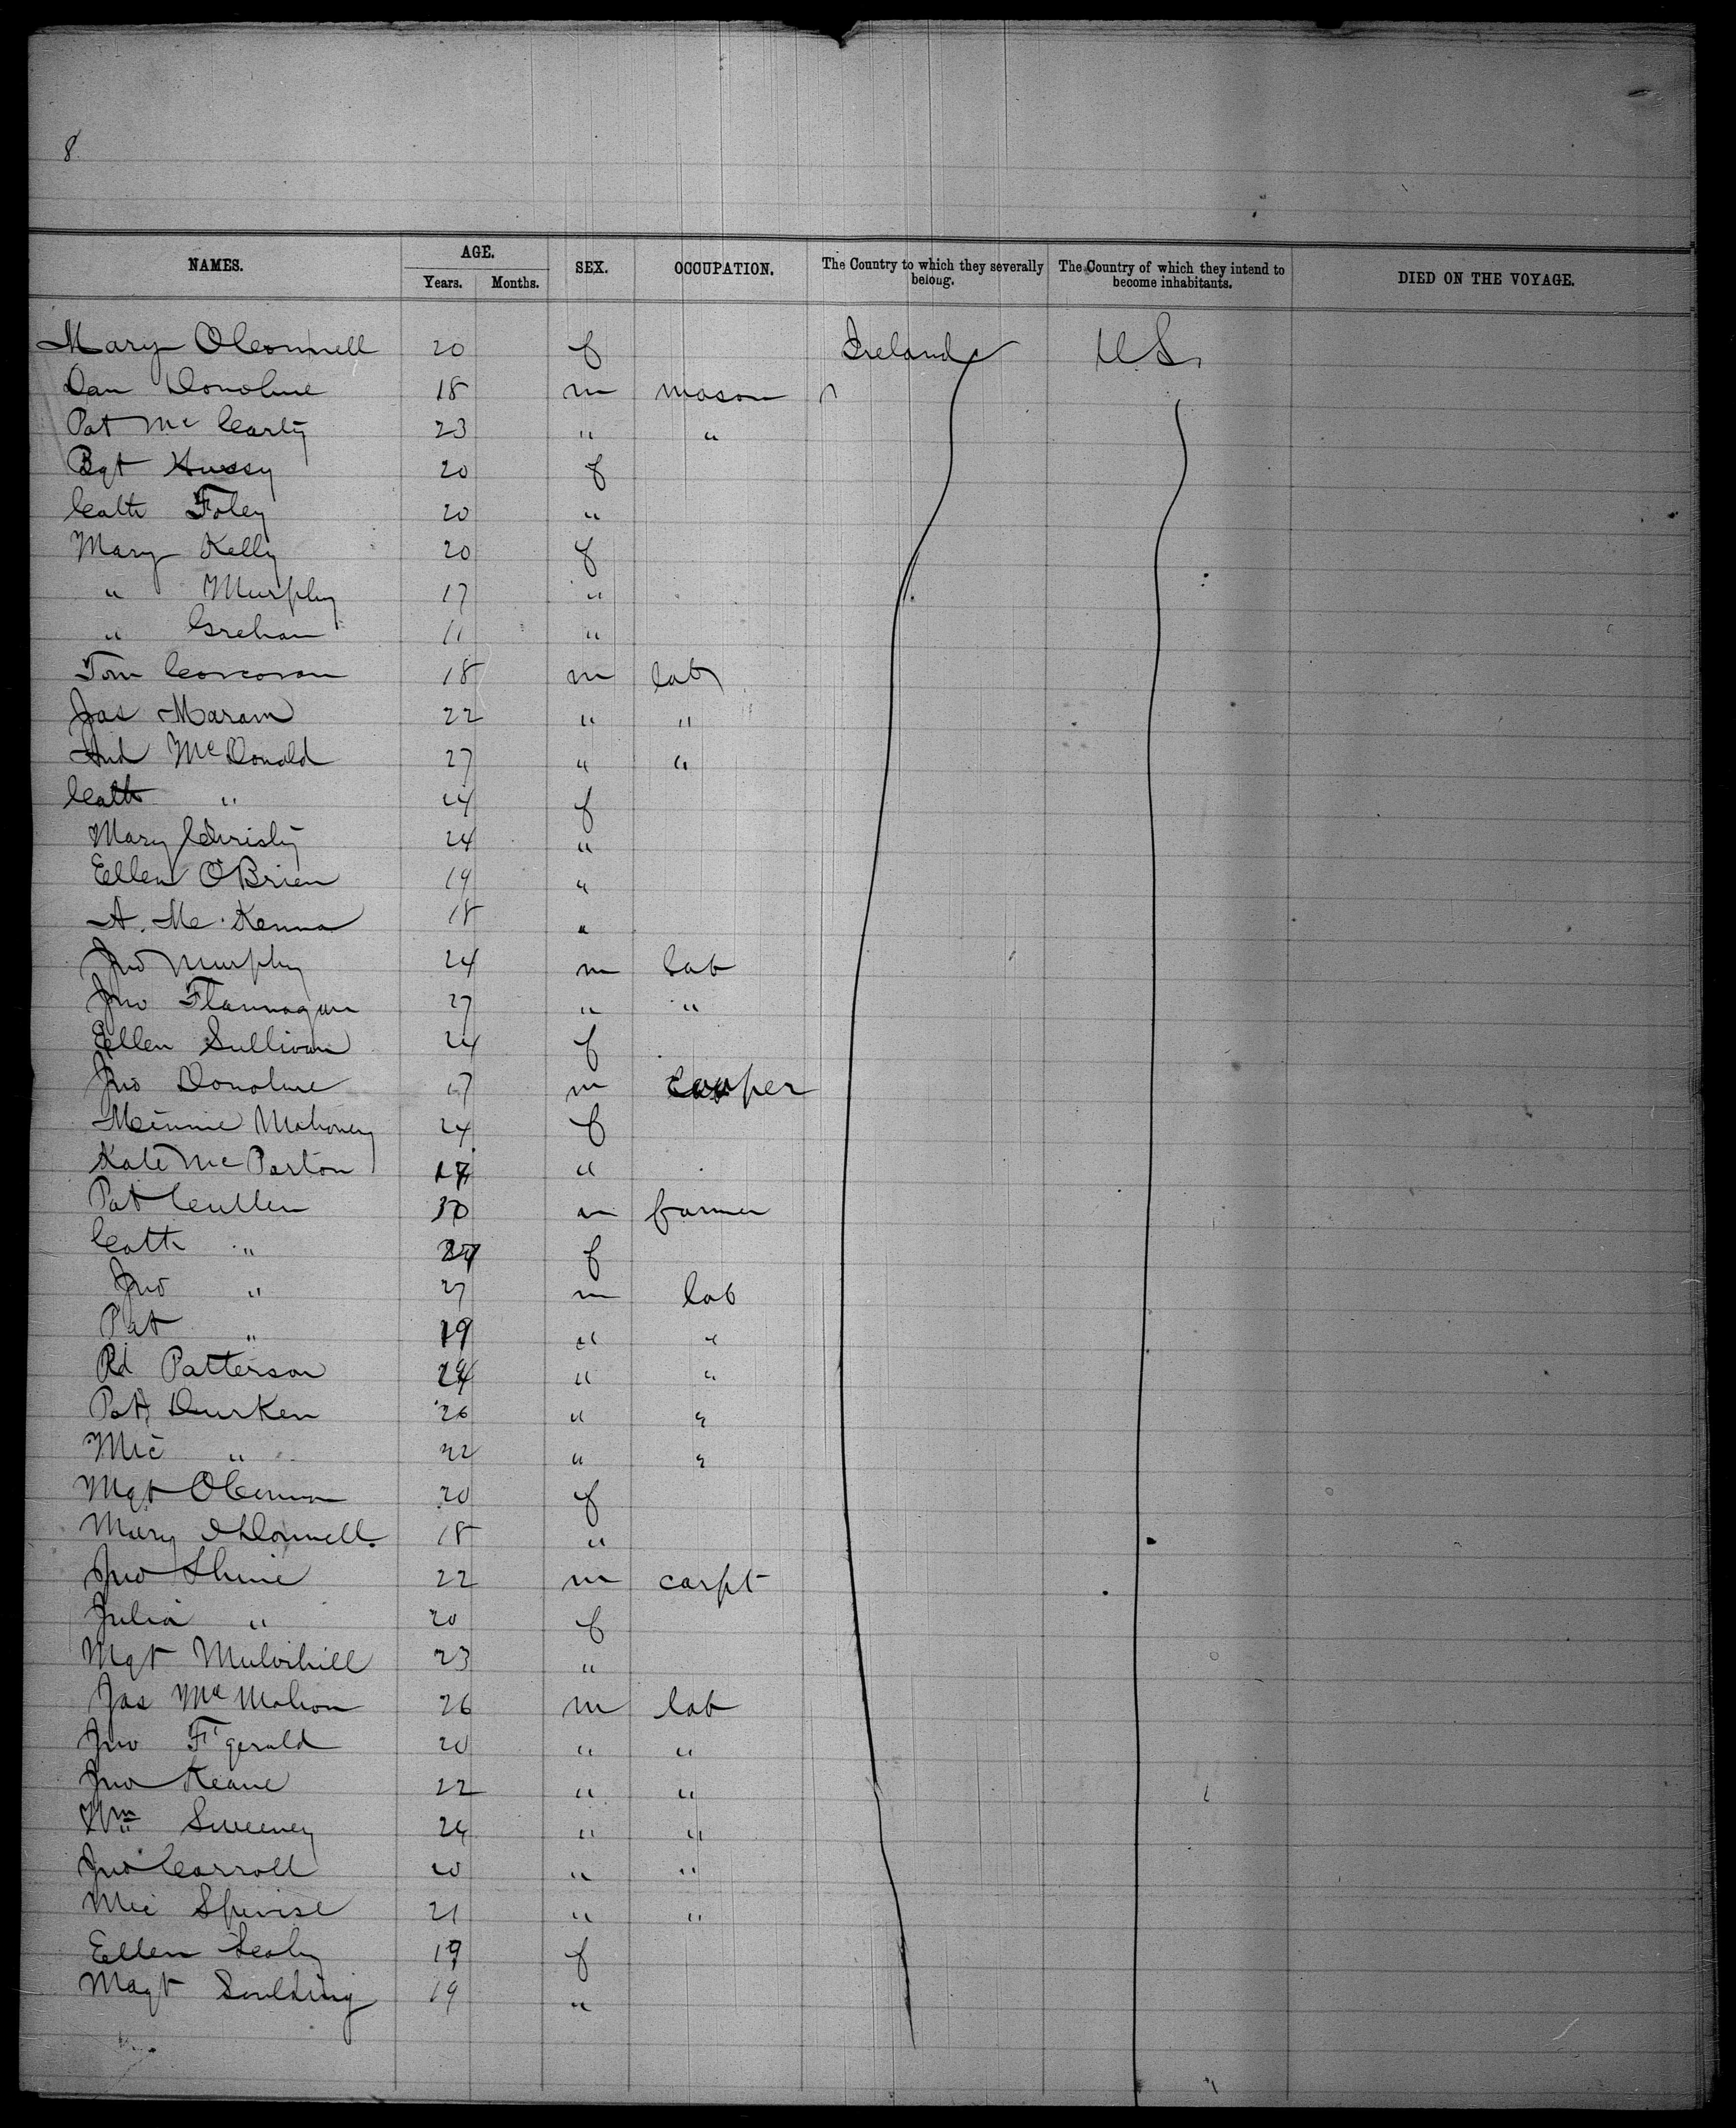 8
NAMES. AGE. Years. Months. SEX. OCCUPATION. The Country to which they severally belong. The Country of which they intend to become inhabitants. DIED ON THE VOYAGE.
Mary OConnell 20 f Ireland U S.
Dan Donohue 18 m mason
Pat Mc Carty 23 " "
Bgt Hussy 20 f
Cath Foley 20 "
Mary Kelly 20 f
" Murphy 17 "
" Grehan 11 "
Tom Corcoran 18 m lab
Jas Maram 22 " "
And McDonald 27 " "
Cath " 24 f
Mary 24 "
Ellen O'Brien 19 "
A. Mc Kenna 18 "
Jno Murphy 24 m lab
Jno Flannagan 27 " "
Ellen Sullivan 24 f
Jno Donohue 17 m cooper
Minnie Mahoney 24 f
Kate Mc Parton "
Pat Cullen 30 m farmer
Cath " f
Jno " 27 m lab
Pat " 19 " "
Rd Patterson 24 " "
Pat Durken 26 " "
Mic " 22 " "
Mgt 20 f
Mary ODonnell. 18 "
Jno Shine 22 m carpt
Julia " 20 f
Mgt Mulvihill 23 "
Jas McMahon 26 m lab
Jno F'gerald 20 " "
Jno Keane 22 " "
Wm Sweeney 24 " "
Jno Carroll 20 " "
Mic 21 " "
Ellen 19 f
Magt 19 "